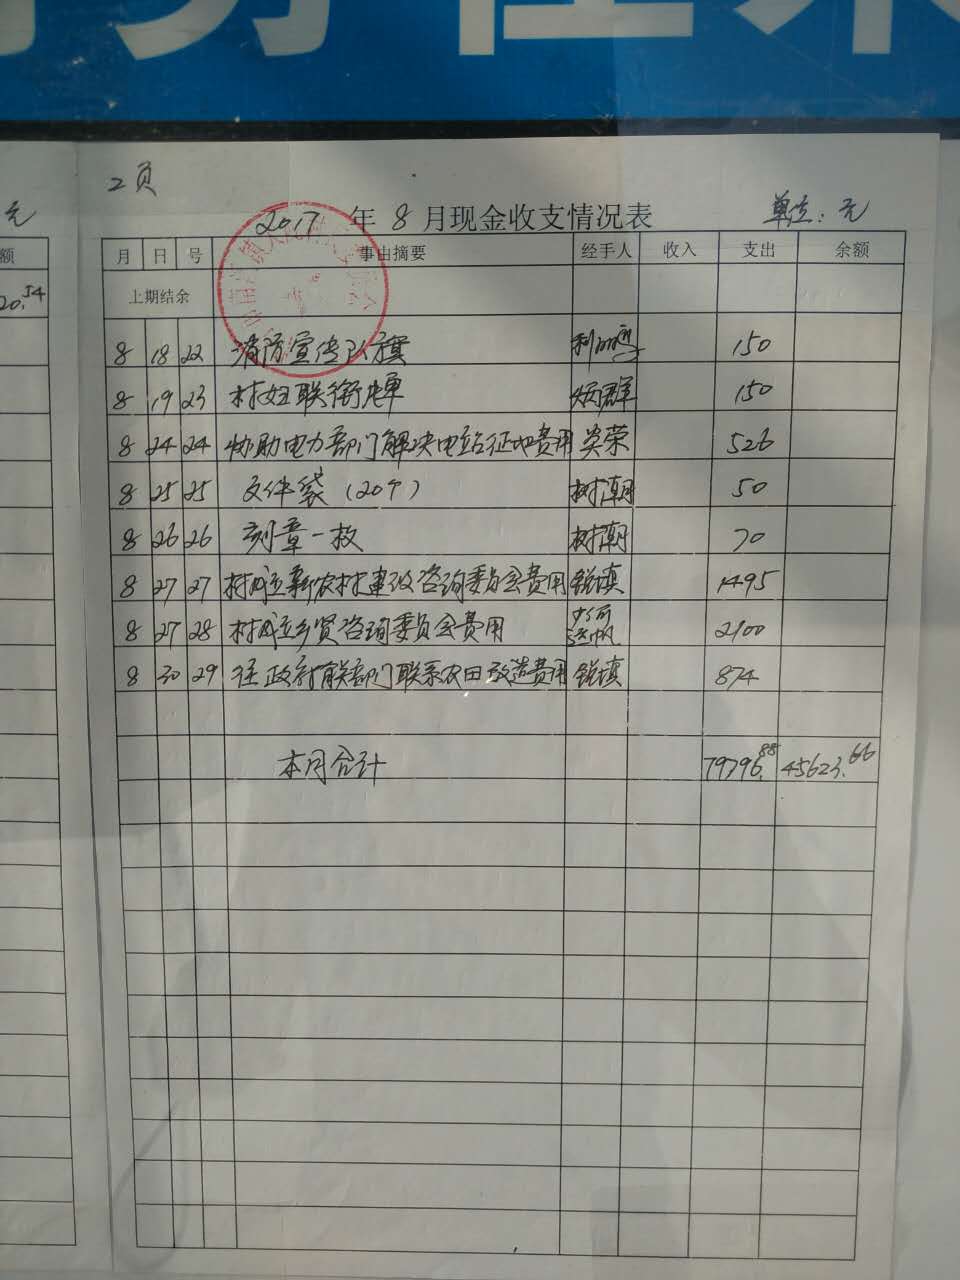 2页
2017年8月现金收支情况表 单位:元
月 日 号 事由摘要 经手人 收入 支出 余额
上期结余
8 18 22 消防宣传队旗 150
8 19 23 村妇联衔牌 炳群 150
8 24 24 协助电力部门解决电站征地费用 奕荣 526
8 25 25 文件袋(20个) 树潮 50
8 26 26 刻章一枚 树潮 70
8 27 27 村成立新农村建设咨询委员会费用 锐填 1495
8 27 28 村成立乡贤咨询委员会费用 2100
8 30 29 往政府有关部门联系农田改造费用 锐填 874
本月合计 79796.88 45623.66
元
额
20.54